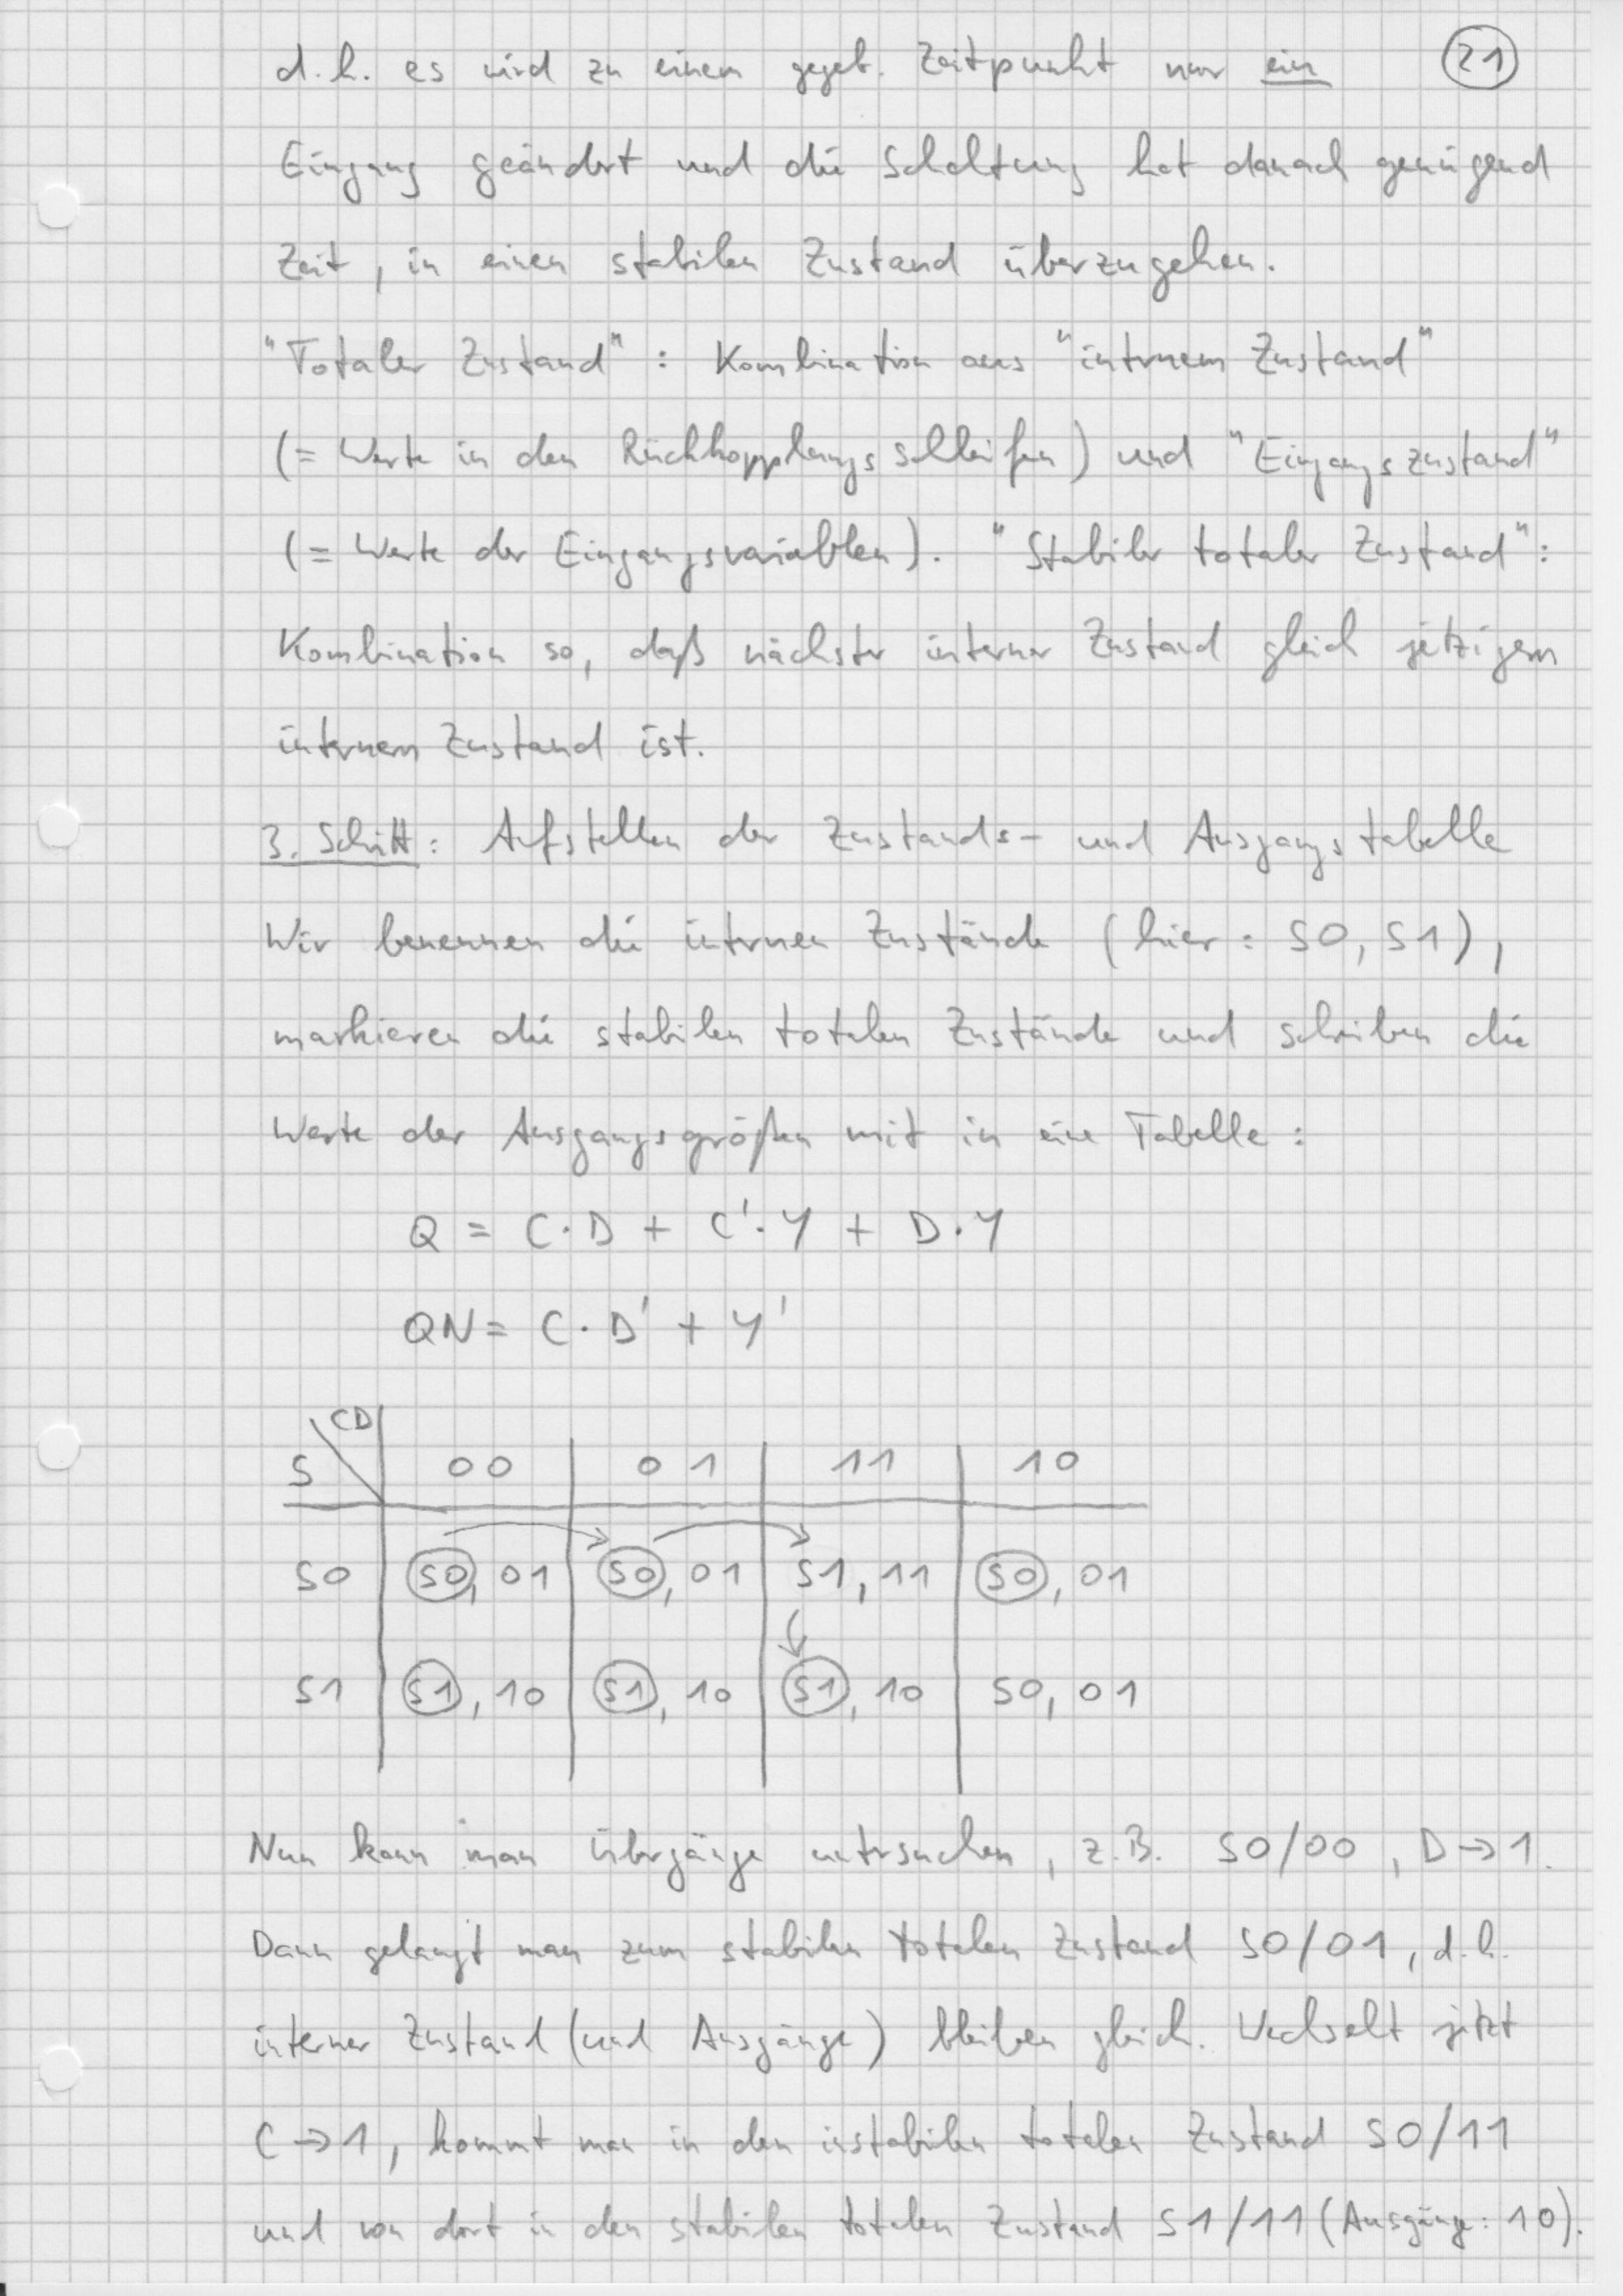 d.h. es wird zu einem gegeb. Zeitpunkt nur ein 21
Eingang geändert und die Schaltung hat danach genügend
Zeit, in einen stabilen Zustand überzugehen.
"Totaler Zustand": Kombination aus "internem Zustand"
(= Werte in den Rückkopplungsschleifen) und "Eingangszustand"
(= Werte der Eingangsvariablen). "Stabiler totaler Zustand":
Kombination so, daß nächster interner Zustand gleich jetzigem
internem Zustand ist.
3. Schritt: Aufstellen der Zustands- und Ausgangstabelle
Wir benennen die internen Zustände (hier: S0, S1),
markieren die stabilen totalen Zustände und schreiben die
Werte der Ausgangsgrößen mit in eine Tabelle:
Q = C·D + C'·Y + D·Y
QN = C·D' + Y'
CD
S 00 01 11 10
S0 S0, 01 S0, 01 S1, 11 S0, 01
S1 S1, 10 S1, 10 S1, 10 S0, 01
Nun kann man Übergänge untersuchen, z.B. S0/00, D→1.
Dann gelangt man zum stabilen totalen Zustand S0/01, d.h.
interner Zustand (und Ausgänge) bleiben gleich. Wechselt jetzt
C→1, kommt man in den instabilen totalen Zustand S0/11
und von dort in den stabilen totalen Zustand S1/11 (Ausgänge: 10).